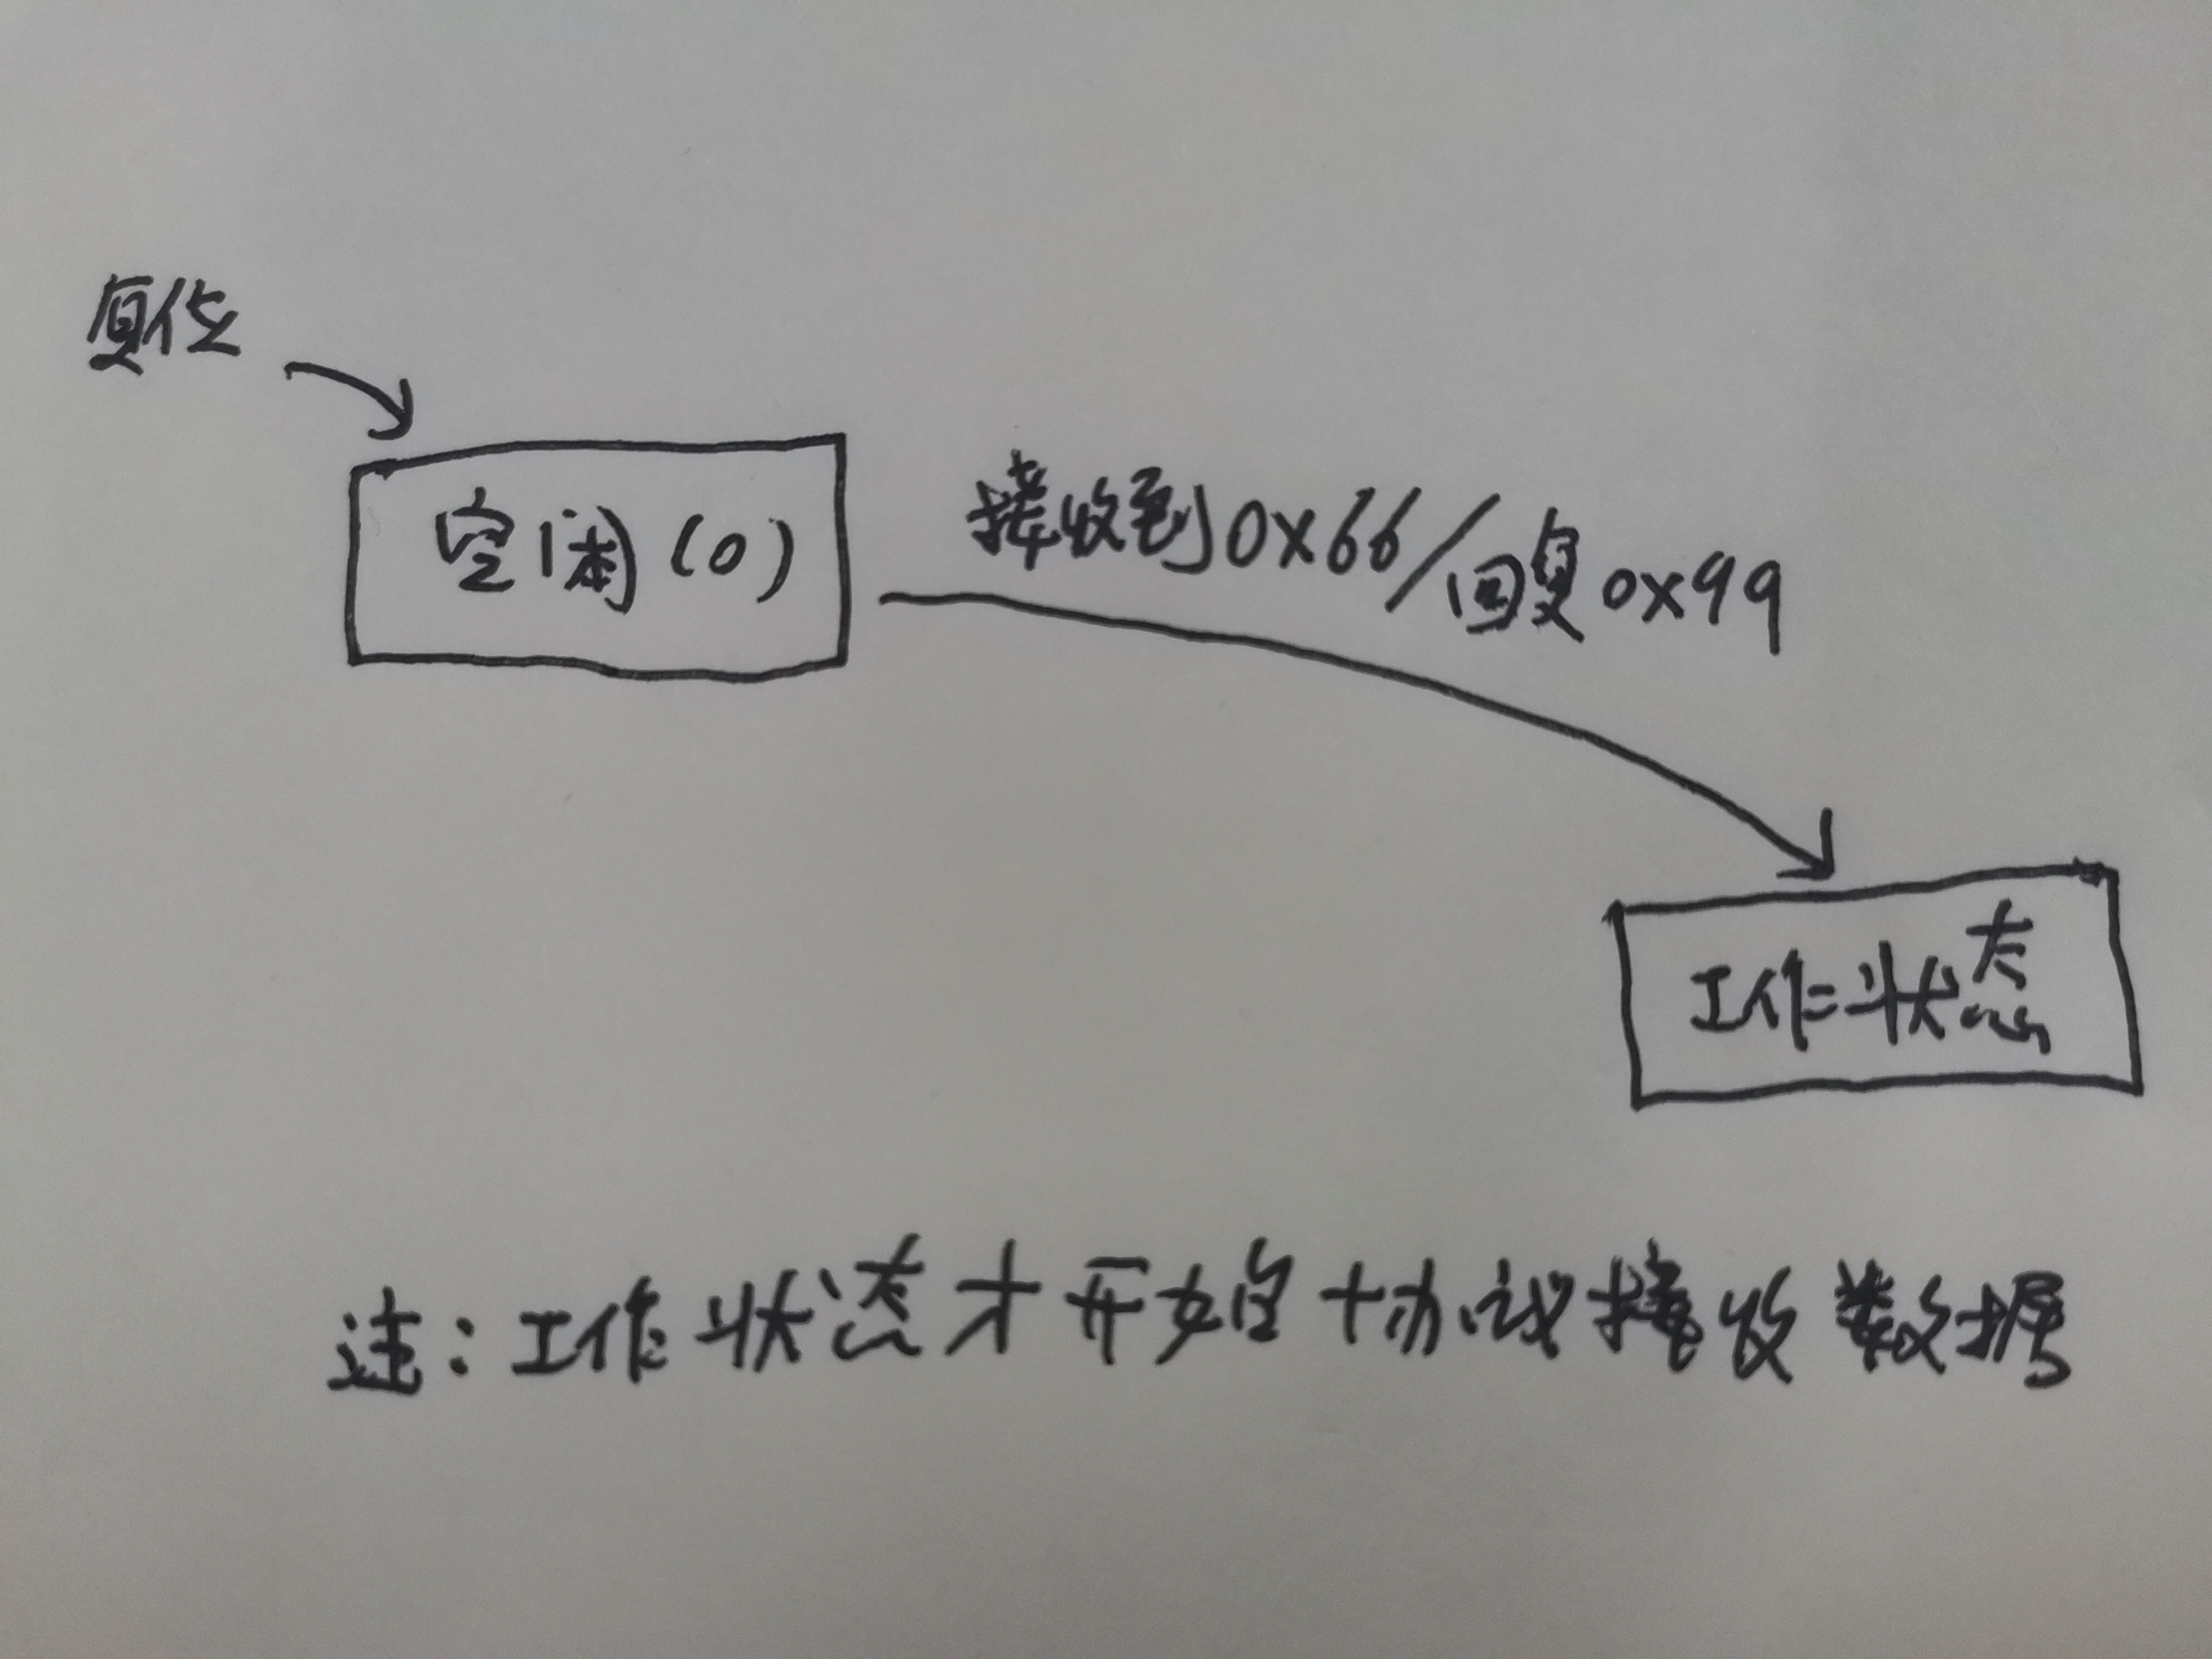 复位
空闲(0)
接收到0x66/回复0x99
工作状态
注:工作状态才开始协议接收数据